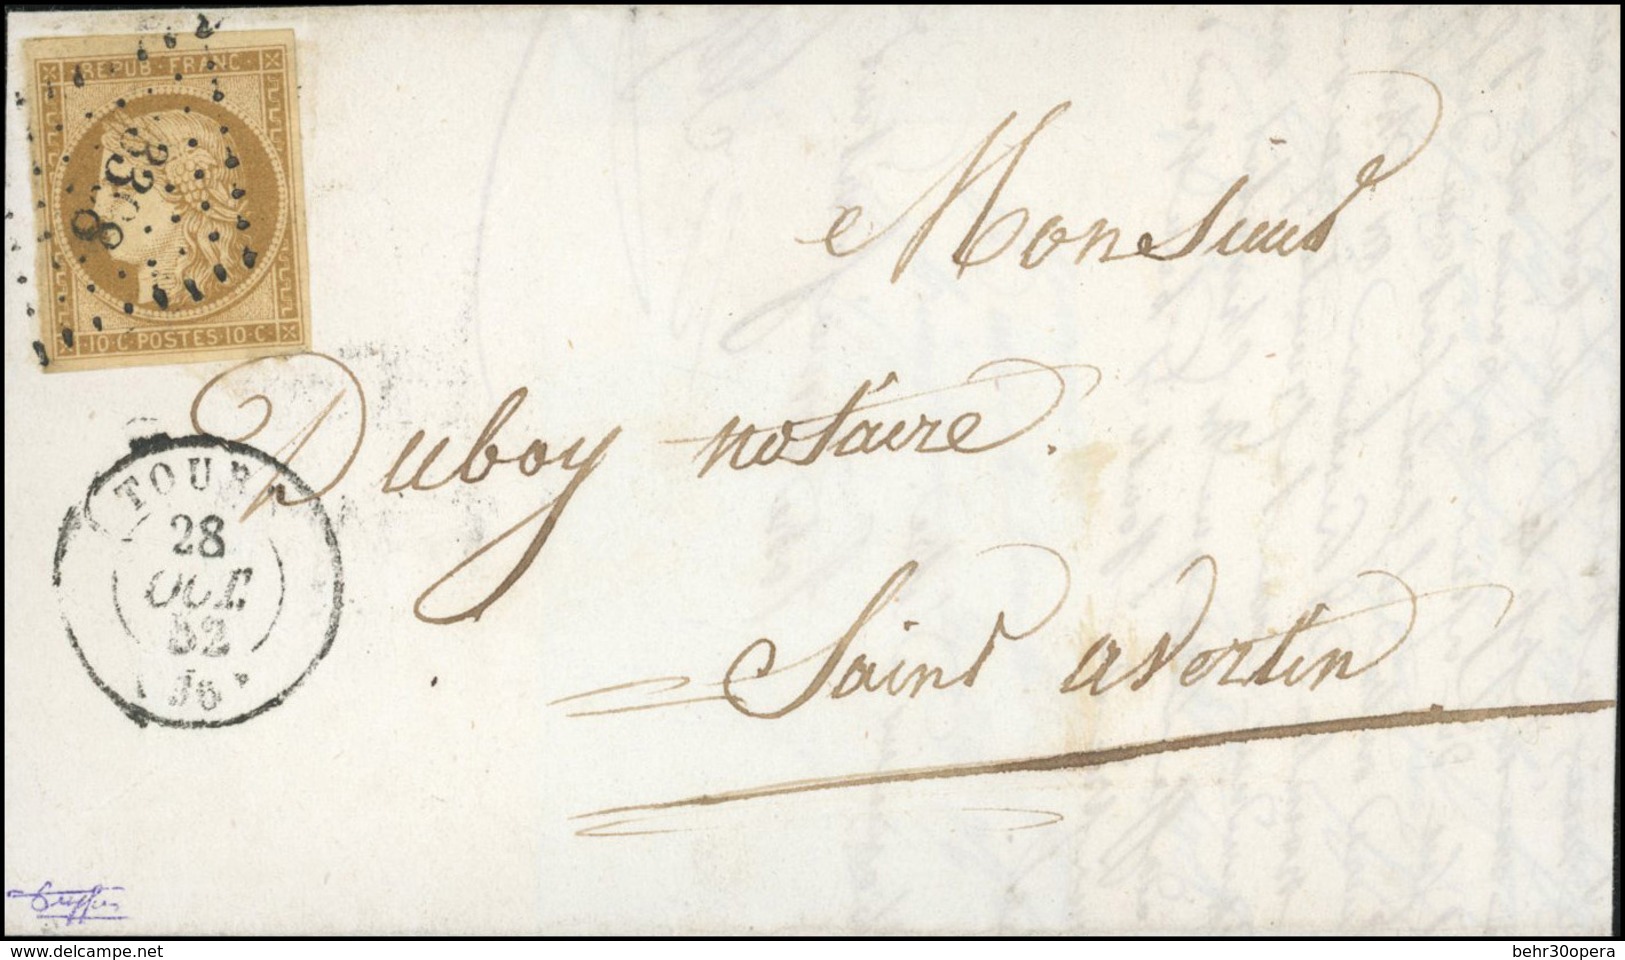 REPUB·FRANC·
10·C·POSTES·10·C·
3388
Monsieur
Duboy notaire.
Saint avertin
TOURS
28
OCT.
52
(36)
www.delcampe.net
behr30opera